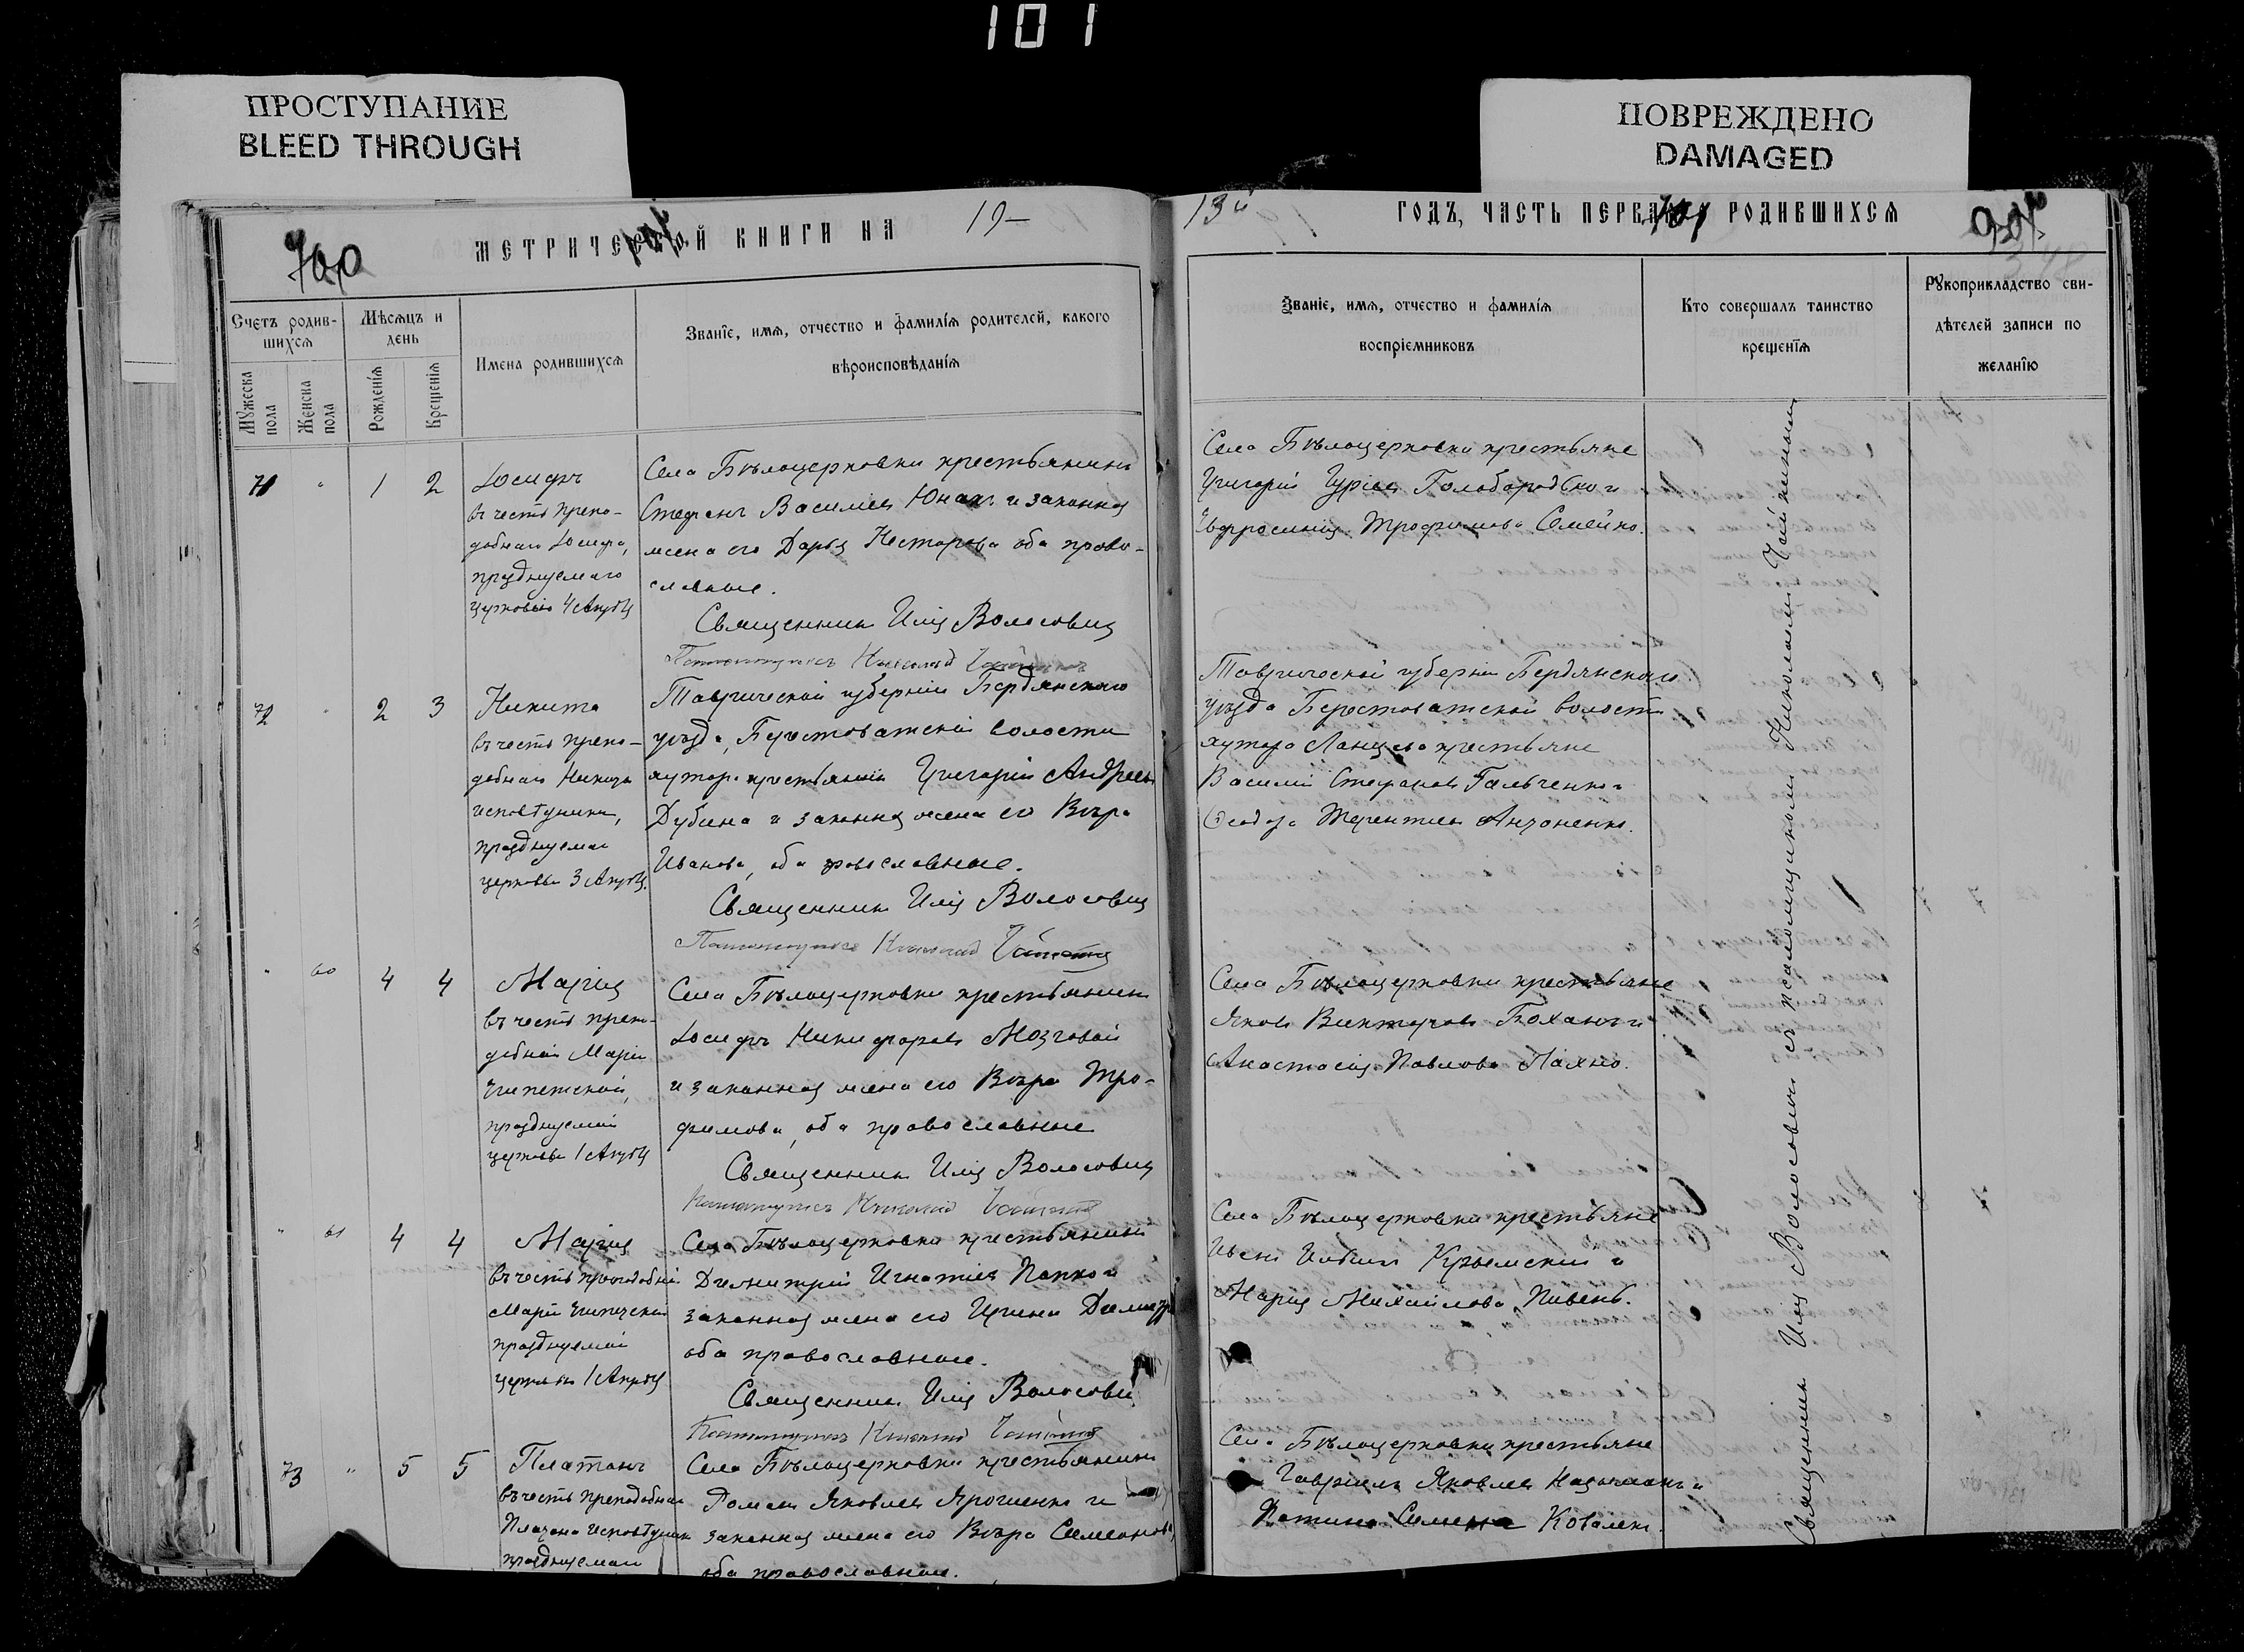 101
ПРОСТУПАНИЕ
BLEED THROUGH
ПОВРЕЖДЕНО
DAMAGED
МЕТРИЧЕСКОЙ КНИГИ НА 19—
Счетъ родив-
шихся
Мѣсяцъ и
день
Мужеска
пола
Женска
пола
Рожденія
Крещенія
Имена родившихся
Званіе, имя, отчество и фамилія родителей, какого
вѣроисповѣданія
71 " 1 2
Іосифъ
въ честь препо-
добнаго Іосифа,
празднуемаго
церковью 4 Апрѣля
Села Бѣлоцерковки крестьянинъ
Стефанъ Васильевъ Юнакъ и законная
жена его Дарья Несторова оба право-
славные.
Священникъ Илія Волосовичъ
Псаломщикъ Николай
72 " 2 3
Никита
въ честь препо-
добнаго Никиты
исповѣдника,
празднуемаго
церковью 3 Апрѣля.
Таврической губерніи Бердянскаго
уѣзда, Берестоватской волости
хутора крестьянинъ Григорій Андреевъ
Дубина и законная жена его Вѣра
Иванова, оба православные.
Священникъ Илія Волосовичъ
Псаломщикъ Николай
" 60 4 4
Марія
въ честь препо-
добной Маріи
Египетской,
празднуемой
церковью 1 Апрѣля
Села Бѣлоцерковки крестьянинъ
Іосифъ Никифоровъ Мозговой
и законная жена его Вѣра Тро-
фимова, оба православные
Священникъ Илія Волосовичъ
Псаломщикъ Николай
" 61 4 4
Марія
въ честь преподобной
Маріи Египетской
празднуемой
церковью 1 Апрѣля
Села Бѣлоцерковки крестьянинъ
Димитрій Игнатіевъ Папко и
законная жена его Ирина
оба православные.
Священникъ Илія Волосовичъ
Псаломщикъ Николай
73 " 5 5
Платонъ
въ честь преподобнаго
Платона исповѣдника
празднуемаго
Села Бѣлоцерковки крестьянинъ
Романъ Яковлевъ Ярошенко и
законная жена его Вѣра Симеонова,
оба православные.
13й ГОДЪ, ЧАСТЬ ПЕРВАЯ, О РОДИВШИХСЯ
Званіе, имя, отчество и фамилія
воспріемниковъ
Кто совершалъ таинство
крещенія
Рукоприкладство сви-
дѣтелей записи по
желанію
Села Бѣлоцерковки крестьяне
Григорій Гуріевъ Голобородько и
Евфросинія Трофимова Семейко.
Таврической губерніи Бердянскаго
уѣзда Берестоватской волости
хутора крестьяне
Василій Стефановъ Гальченко и
Феодора Терентіева Антоненко.
Села Бѣлоцерковки крестьяне
Яковъ Викторовъ Боханъ и
Анастасія Павлова Пахно.
Села Бѣлоцерковки крестьяне
Крымскій и
Марія Михайлова Пивень.
Села Бѣлоцерковки крестьяне
Гавріилъ Яковлевъ и
Коваленко.
Священникъ Илія Волосовичъ съ псаломщикомъ Николаемъ